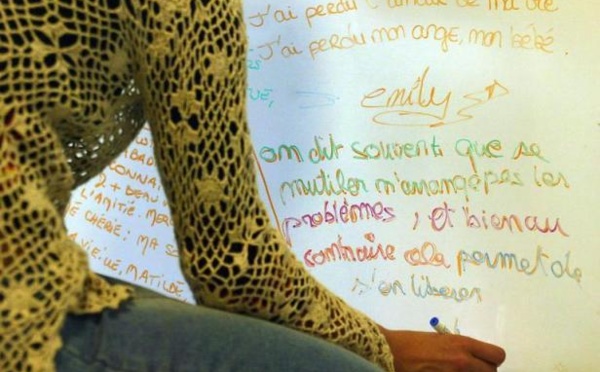 J'ai perdu l'amour de ma vie
J'ai perdu mon ange, mon bébé.
emily
on dit souvent que se
mutiler n'arrange pas les
problèmes, et bien au
contraire cela permet de
s'en libérer
CONNAI
2 + BEAU
L'AMITIÉ. MER
E CHÉRIE : MA S
A VIE. UE, MATILDE